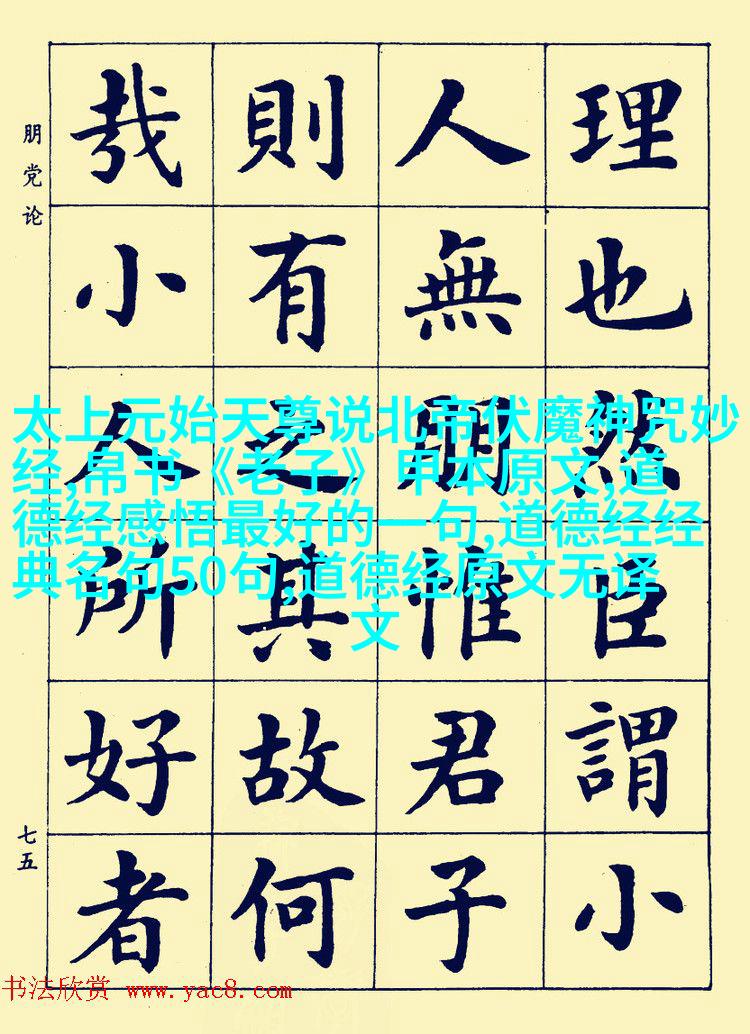 理也然臣謂小
人無朋惟君子
則有之其故何
哉小人所好者
朋党论
七五
太上元始天尊说北帝伏魔神咒妙
经,帛书《老子》甲本原文,道
德经感悟最好的一句,道德经经
典名句50句,道德经原文无译
文
书法欣赏 www.yac8.com